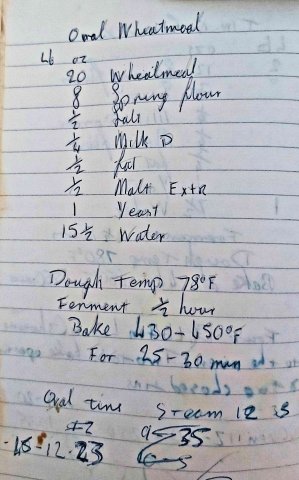 Oval Wheatmeal
Lb oz
20 Wheatmeal
8 Spring flour
½ Salt
¼ Milk P
½ fat
½ Malt Extr
1 Yeast
15½ Water
Dough Temp 78°F
Ferment ½ hour
Bake 430-450°F
For 25-30 min
Oval tins Steam 12
35
-12-23